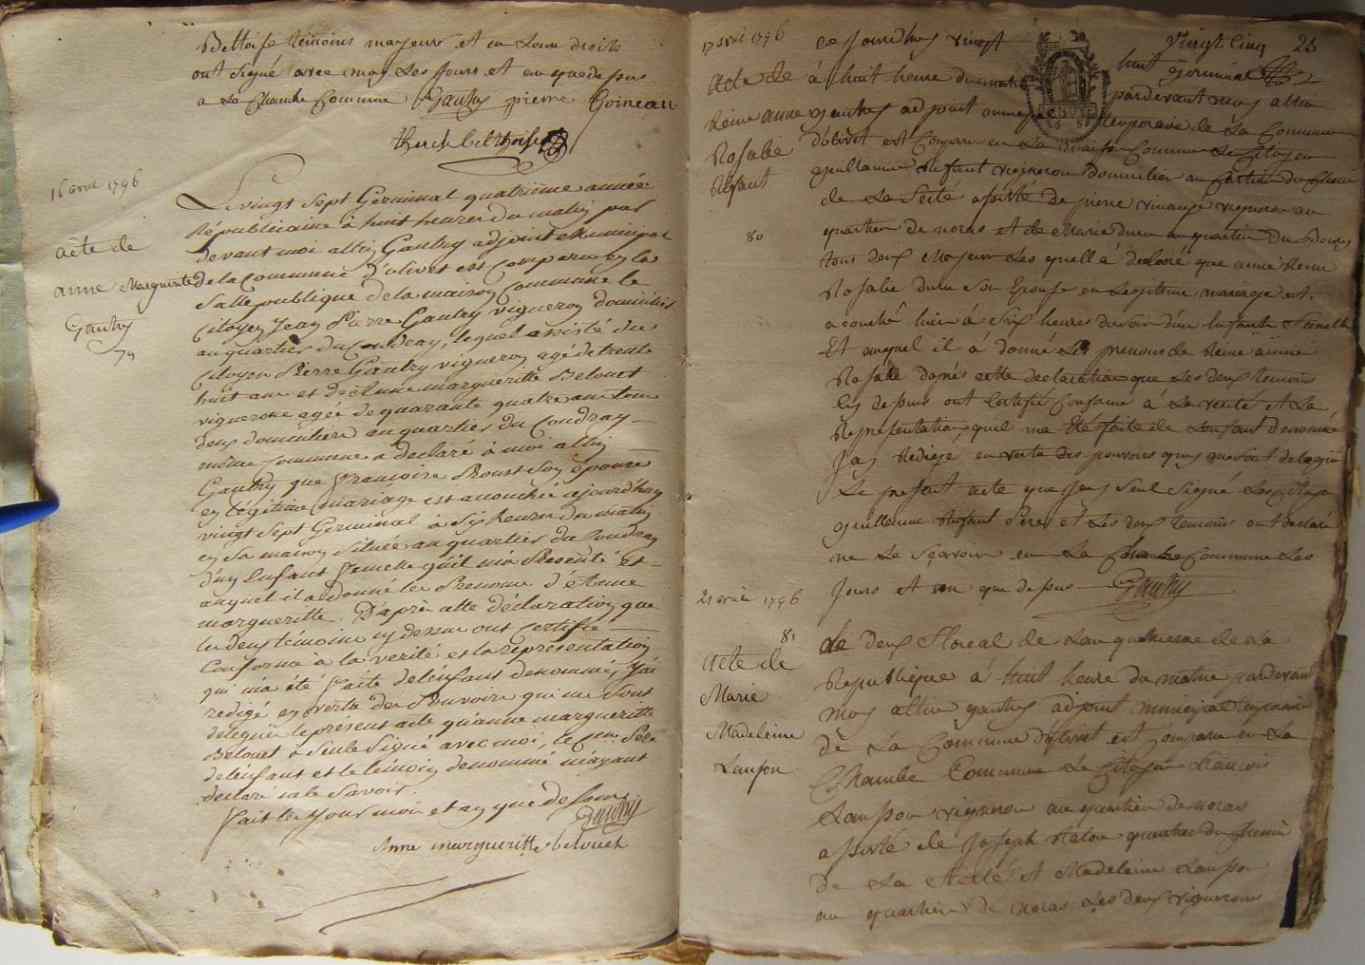 témoins majeurs et en Leurs droits
ont Signé avec moy Les jours et an que de sus
a La Chambe Commune Gautry pierre Goineau
16 avril 1796
acte de
anne Marguerite
Gautry
79
Le vingt Sept Germinal quatrieme année
Républicaine à huit heures du matin par
devant moi altin Gautry adjoint Municipal
de la Commune d'olivet est comparu en la
Salle publique de la maison Commune le
Citoyen Jean Pierre Gautry vigneron domicilié
au quartier du Coudray, lequel assisté du
Citoyen Pierre Gautry vigneron agé de trente
huit ans et de anne margueritte Belouet
vigneronne agée de quarante quatre ans tous
deux domiciliers au quartier du Coudray
même Commune a déclaré à moi altin
Gautry que françoise Son épouse
en légitime mariage est accouchée aujourd'huy
vingt Sept Germinal à Six heures du matin
en Sa maison Située au quartier du Coudray
d'un Enfant femelle qu'il m'a Presenté Et
auquel il a donné les Prenoms d'Anne
margueritte. D'après cette déclaration que
les deux témoins cy dessus ont certifié
Conforme à la verité et la représentation
qui m'a été faite de l'enfant denommé, J'ai
redigé en vertu des Pouvoirs qui me Sont
delegués le présent acte qu'anne margueritte
Belouet a Seule Signé avec moi, le Père
de l'enfant et le témoin denommé n'ayant
declaré ne le Savoir.
fait les jour mois et an que dessus
Gautry
Anne margueritte belouet
17 avril 1796
acte de
Reine anne
Rosalie
Rifaut
80
Vingt Cinq 25
ce jourdhuy vingt huit Germinal
à huit heure du matin pardevant moy altin
gautry adjoint temporaire de La Commune
d'olivet est Comparu en La maison Commune Le Citoyen
guillaume Rifaut vigneron Domicilier au
de La assisté de pierre vigneron au
quartier de noras et de Marie au quartier du
tous deux Majeur Les quell à déclaré que anne Reine
Rosalie Son Epouse en Legitime mariage est
acouché hier à Six heures du soir d'un Enfant femelle
Et auquel il á donné Les prenoms de Reine anne
Rosalie daprés cette declaration que Les deux temoins
cy de sus ont Certifié Conforme á La verité et La
Représentation quil ma été faite de Lenfant denommé
Jay Redigé en vertu des pouvoirs qui me sont delegué
Le present acte que jay Seul Signé
guillaume Rifaut Pere et Les deux temoins ont declaré
ne Le Sçavoir en La Chambe Commune Les
jours et an que de sus Gautry
21 avril 1796
81
acte de
Marie
Madeleine
Lanson
Le deux floreal de Lan quatriesme de La
Republique á huit heure du matin pardevant
moy altin gautry adjoint municipal temporaire
de La Commune d'olivet est comparu en La
Chambe Commune Le Citoyen francois
Lanson vigneron au quartier de noras
assisté de Joseph quartier du
De La et Madeleine Lanson
au quartier de noras Les deux vignerons